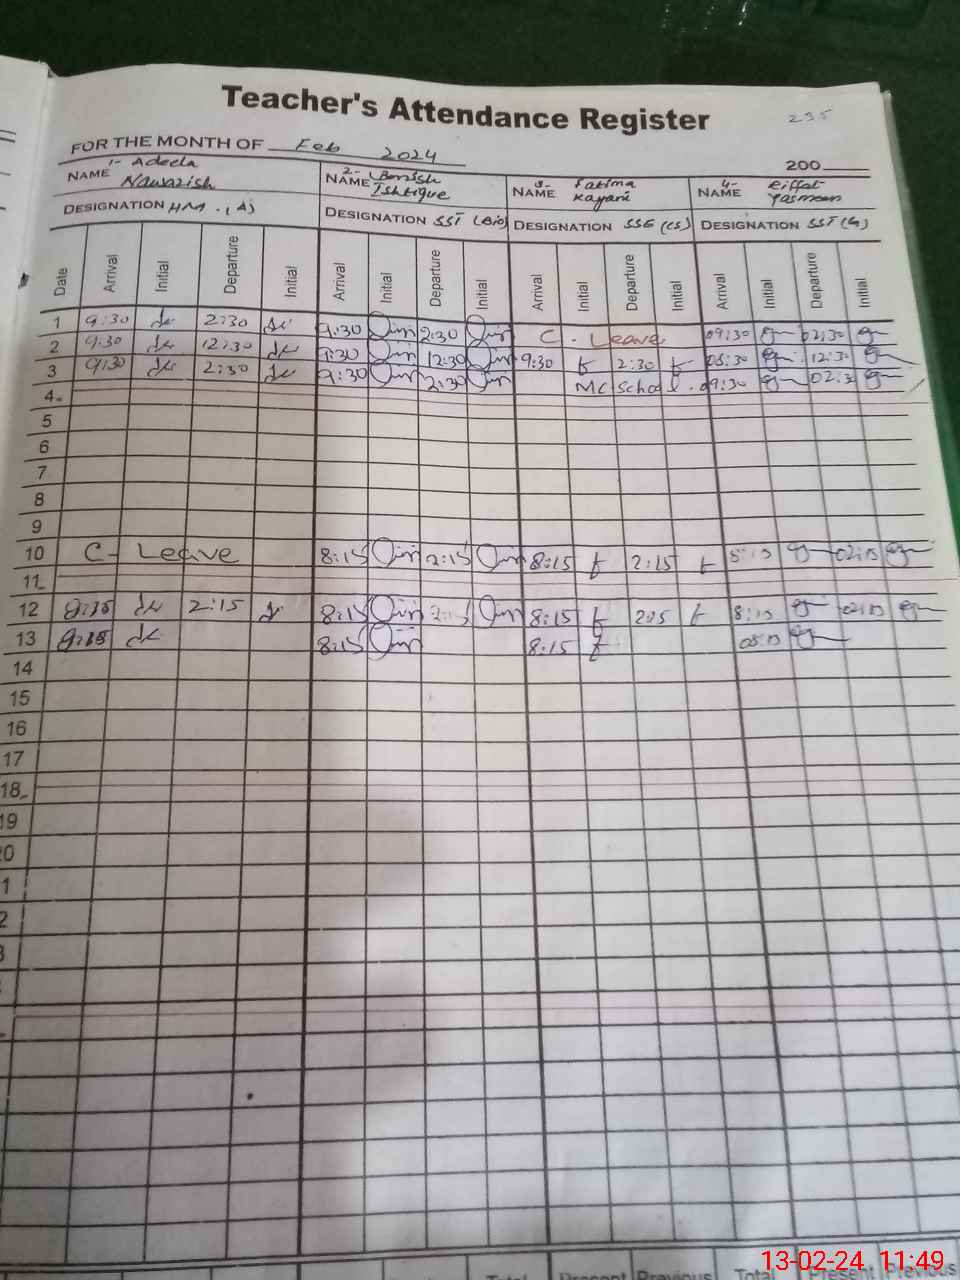 Teacher's Attendance Register
295
FOR THE MONTH OF Feb 2024
200
NAME 1- Adeela Nawazish
NAME 2- Ishtique
NAME 3- Fatima Kayani
NAME 4- Riffat Yasmeen
DESIGNATION HM.(A)
DESIGNATION SST (Bio)
DESIGNATION SSE (CS)
DESIGNATION SST(G)
Date Arrival Initial Departure Initial Arrival Initial Departure Initial Arrival Initial Departure Initial Arrival Initial Departure Initial
1 9:30 2:30 9:30 2:30 C - Leave 09:30 02:30
2 9:30 12:30 9:30 12:30 9:30 f 2:30 f 08:30 12:30
3 9:30 2:30 9:30 2:30 MC School 09:30 02:30
4
5
6
7
8
9
10 C - Leave 8:15 2:15 8:15 f 2:15 f 8:15 02:15
11
12 8:15 2:15 8:15 2:15 8:15 f 2:15 f 8:15 02:15
13 8:15 8:15 8:15 f 08:15
14
15
16
17
18
19
0
1
2
3
Total Present Previous Total Present Previous
13-02-24 11:49